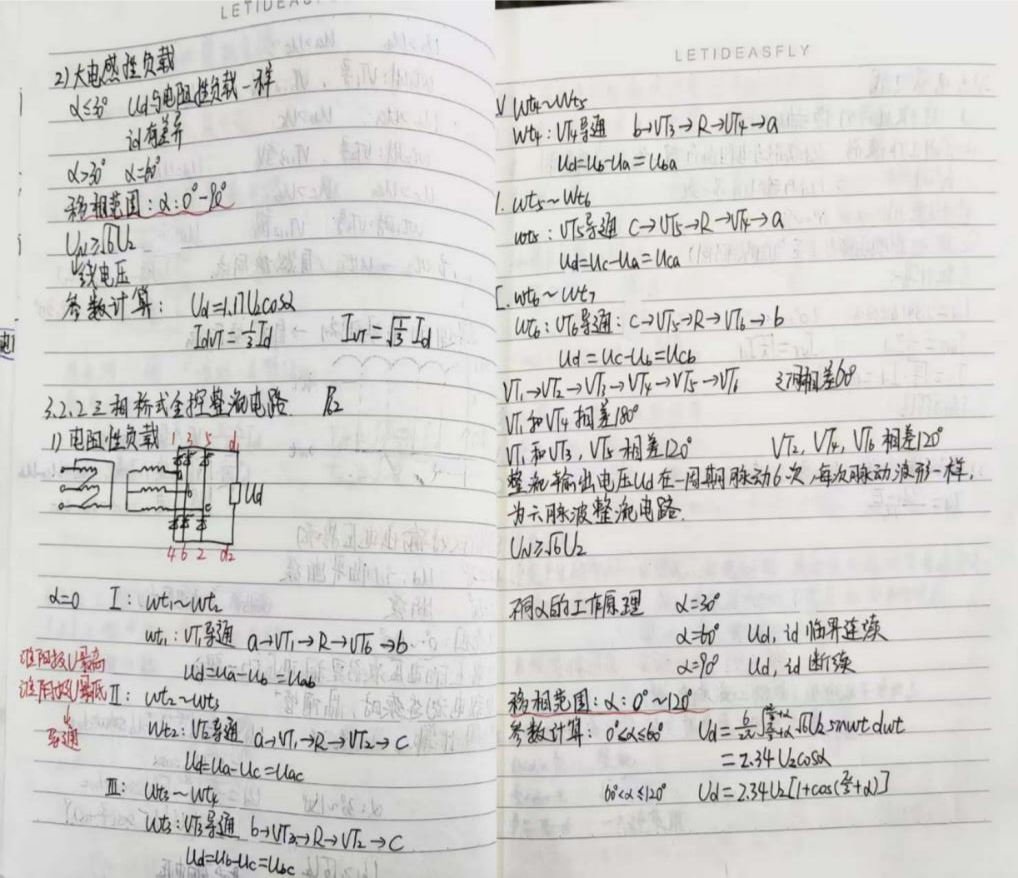 LETIDEASFLY
2)大电感性负载
α≤30° Ud与电阻性负载一样
id有差异
α>30° α=60°
移相范围:α:0°-90°
UN≥√6U2
线电压
参数计算: Ud=1.17U2cosα
IdVT=1/3Id IVT=√(1/3) Id
3.2.2三相桥式全控整流电路
1)电阻性负载
1 3 5 d1
Ud
4 6 2 d2
α=0 Ⅰ: wt1~wt2
wt1:VT1导通 a→VT1→R→VT6→b
Ud=Ua-Ub=Uab
谁阳极U最高
谁阴极U最低
导通
Ⅱ: wt2~wt3
wt2:VT2导通 a→VT1→R→VT2→C
Ud=Ua-Uc=Uac
Ⅲ: wt3~wt4
wt3:VT3导通 b→VT3→R→VT2→C
Ud=Ub-Uc=Ubc
LETIDEASFLY
V wt4~wt5
wt4:VT4导通 b→VT3→R→VT4→a
Ud=Ub-Ua=Uba
wt5~wt6
wt5:VT5导通 C→VT5→R→VT4→a
Ud=Uc-Ua=Uca
wt6~wt7
wt6:VT6导通:C→VT5→R→VT6→b
Ud=Uc-Ub=Ucb
VT1→VT2→VT3→VT4→VT5→VT6 之间相差60°
VT1和VT4相差180°
VT1和VT3,VT5相差120° VT2,VT4,VT6相差120°
整流输出电压Ud在一周期脉动6次,每次脉动波形一样,
为六脉波整流电路.
UN≥√6U2
不同α的工作原理 α=30°
α=60° Ud,id临界连续
α=90° Ud,id断续
移相范围:α:0°~120°
参数计算: 0°<α≤60° Ud=6/2π∫_{π/3+α}^{2π/3+α}√6U2sinwtdwt
=2.34U2cosα
60°<α≤120° Ud=2.34U2[1+cos(π/3+α)]